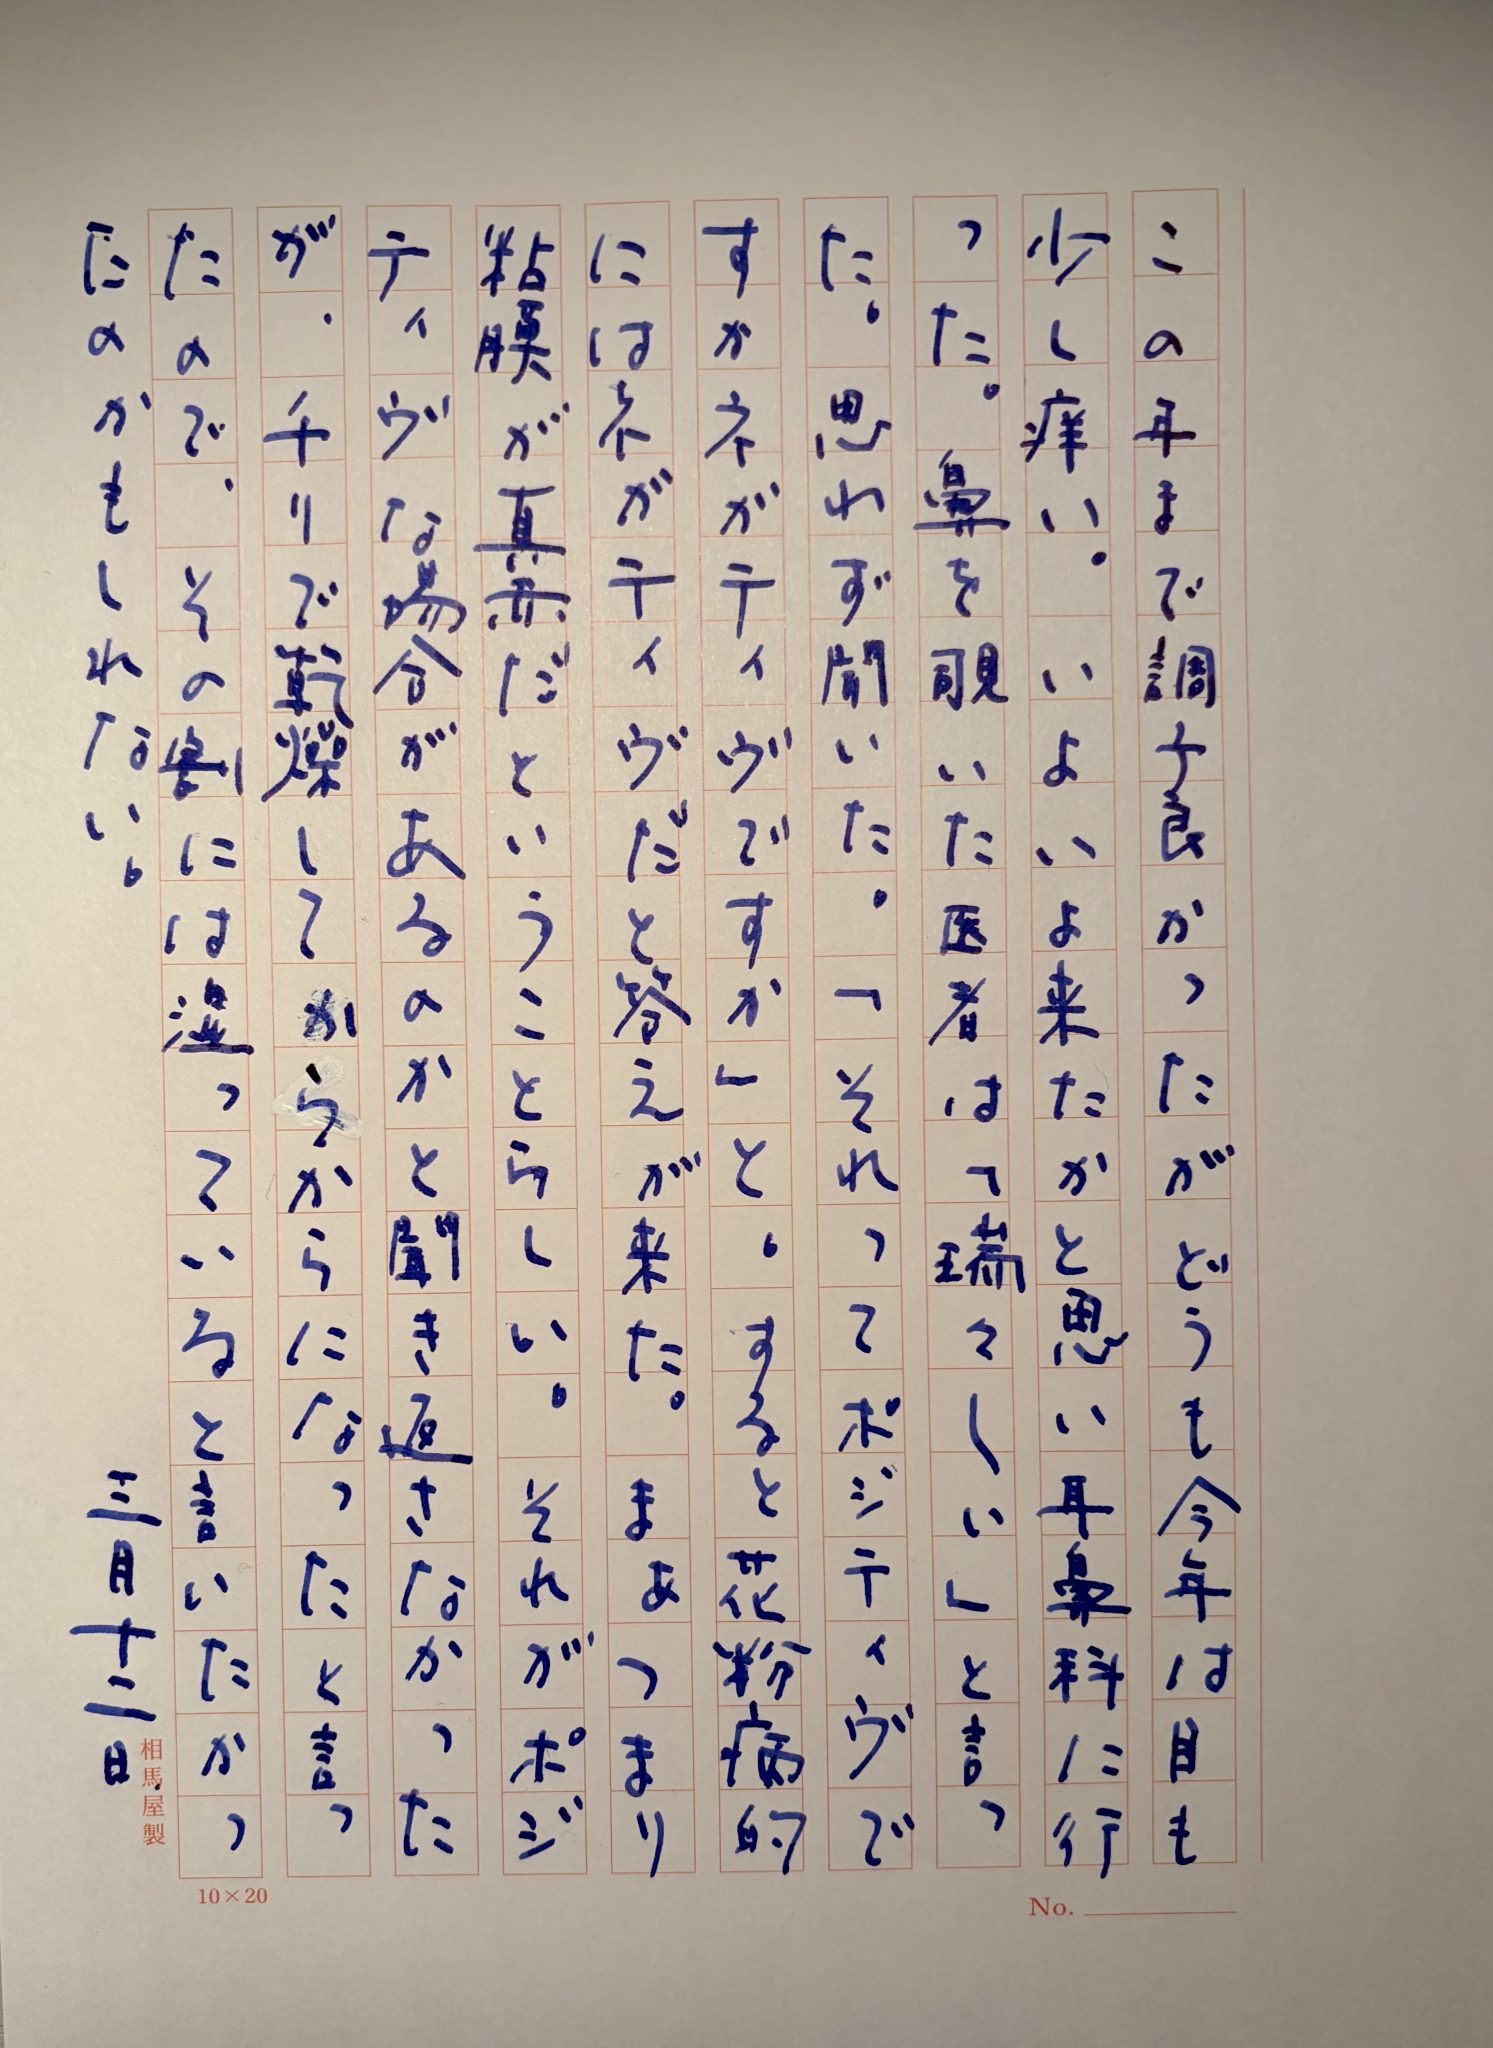 この年まで調子良かったがどうも今年は目も
少し痒い。いよいよ来たかと思い耳鼻科に行
った。鼻を覗いた医者は「瑞々しい」と言っ
た。思わず聞いた。「それってポジティヴで
すかネガティヴですか」と。すると花粉病的
にはネガティヴだと答えが来た。まぁつまり
粘膜が真赤だということらしい。それがポジ
ティヴな場合があるのかと聞き返さなかった
が、チリで乾燥してからからになったと言っ
たので、その割には湿っていると言いたかっ
たのかもしれない。
三月十二日
相馬屋製
10×20
No.